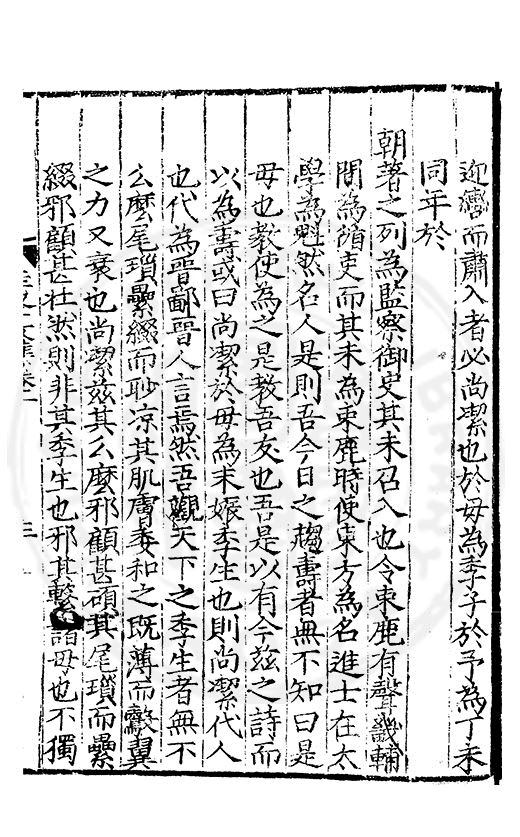 迎膺而肅入者必尚潔也於毋為季子於予為丁未
同年於
朝著之列為監察御史其未召入也令束鹿有聲畿輔
間為循吏而其未為束鹿時使東方為名進士在太
學為魁然名人是則吾今日之趨壽者無不知曰是
毋也教使為之是教吾友也吾是以有今茲之詩而
以為壽或曰尚潔於毋為末娠季生也則尚潔代人
也代為晋鄙晋人言焉然吾觀天下之季生者無不
么麼尾瑣纍綴而眇凉其肌膚委和之既薄而鷇翼
之力又衰也尚潔茲其么麼邪顧甚碩其尾瑣而纍
綴邪顧甚壯然則非其季生也邪其繫諸毋也不獨
文集卷一
三